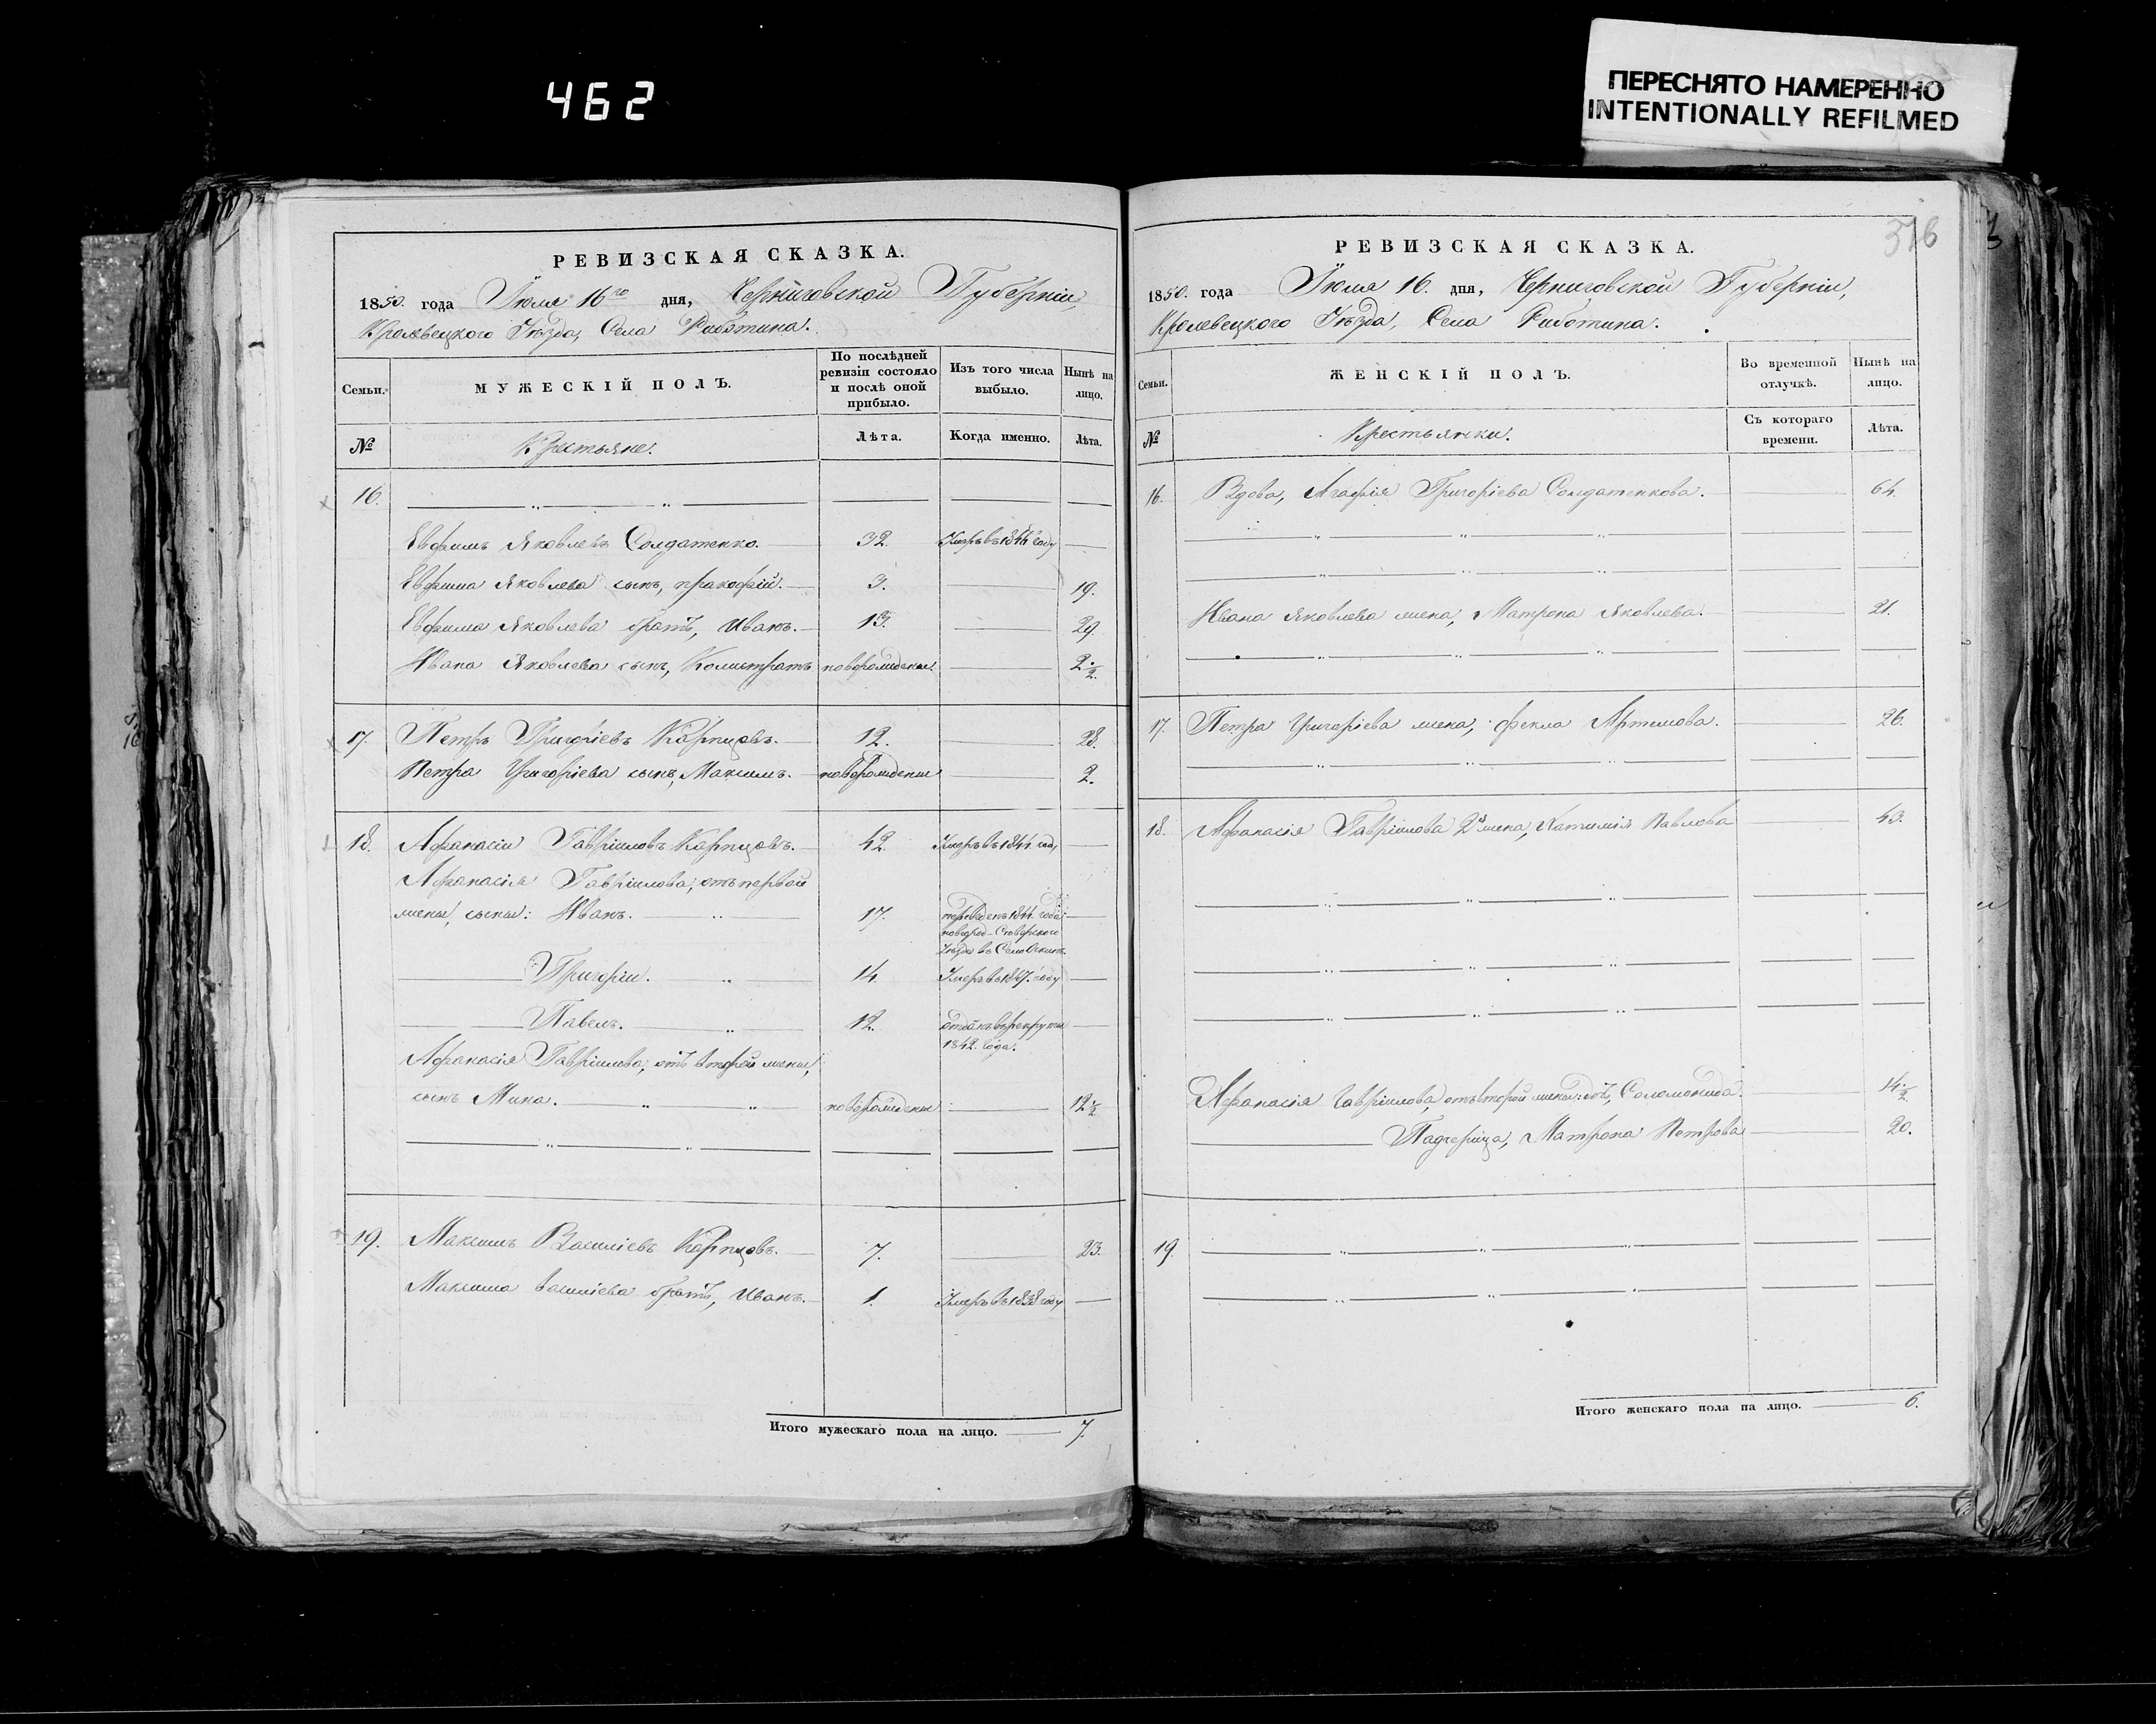 462
ПЕРЕСНЯТО НАМЕРЕННО
INTENTIONALLY REFILMED
РЕВИЗСКАЯ СКАЗКА.
1850. года Іюля 16го дня, Черниговской Губерніи,
Кролевецкого Уѣзда, Села Работина.
Семьи.
МУЖЕСКІЙ ПОЛЪ.
По послѣдней ревизіи состояло и послѣ оной прибыло.
Изъ того числа выбыло.
Нынѣ на лицо.
№
Крестьяне.
Лѣта.
Когда именно.
Лѣта.
16.
Евфимъ Яковлевъ Солдатенко. 32. Умеръ въ 1844 году
Евфима Яковлева сынъ, прокофій. 3. 19.
Евфима Яковлева братъ, Иванъ. 13. 29.
Ивана Яковлева сынъ, Колистратъ новорожденый. 2½.
17. Петръ Григоріевъ Карпцовъ. 12. 28.
Петра Григоріева сынъ, Максимъ. новорожденый 2.
18. Афанасіи Гавріиловъ Карпцовъ. 42. Умеръ въ 1844. году
Афанасія Гавріилова, отъ первой
жены, сыны: Иванъ. 17. переведенъ 1844. года
новгород-Сѣверского
Уѣзда въ Село
Григоріи. 14. Умеръ въ 1847. году
Павелъ. 12. отданъ въ рекруты
1842. года.
Афанасія Гавріилова, отъ второй жены,
сынъ Мина. новорожденый 12½
19. Максимъ Василіевъ Карпцовъ. 7. 23.
Максима Василіева братъ, Иванъ. 1. Умеръ въ 1838 году
Итого мужескаго пола на лицо. 7.
376
РЕВИЗСКАЯ СКАЗКА.
1850. года Іюля 16. дня, Черниговской Губерніи,
Кролевецкого Уѣзда, Села Работина.
Семьи.
ЖЕНСКІЙ ПОЛЪ.
Во временной отлучкѣ.
Нынѣ на лицо.
№
Крестьянки.
Съ котораго времени.
Лѣта.
16. Вдова, Агафія Григоріева Солдатенкова. 64.
Ивана Яковлева жена, Матрона Яковлева. 21.
17. Петра Григоріева жена, фекла Артемова. 26.
18. Афанасія Гавріилова 2я жена, Павлова 43.
Афанасія Гавріилова, отъ второй жены: дочь, Соломонида. 14½
Падчерица, Матрона Петрова 20.
19.
Итого женскаго пола на лицо. 6.